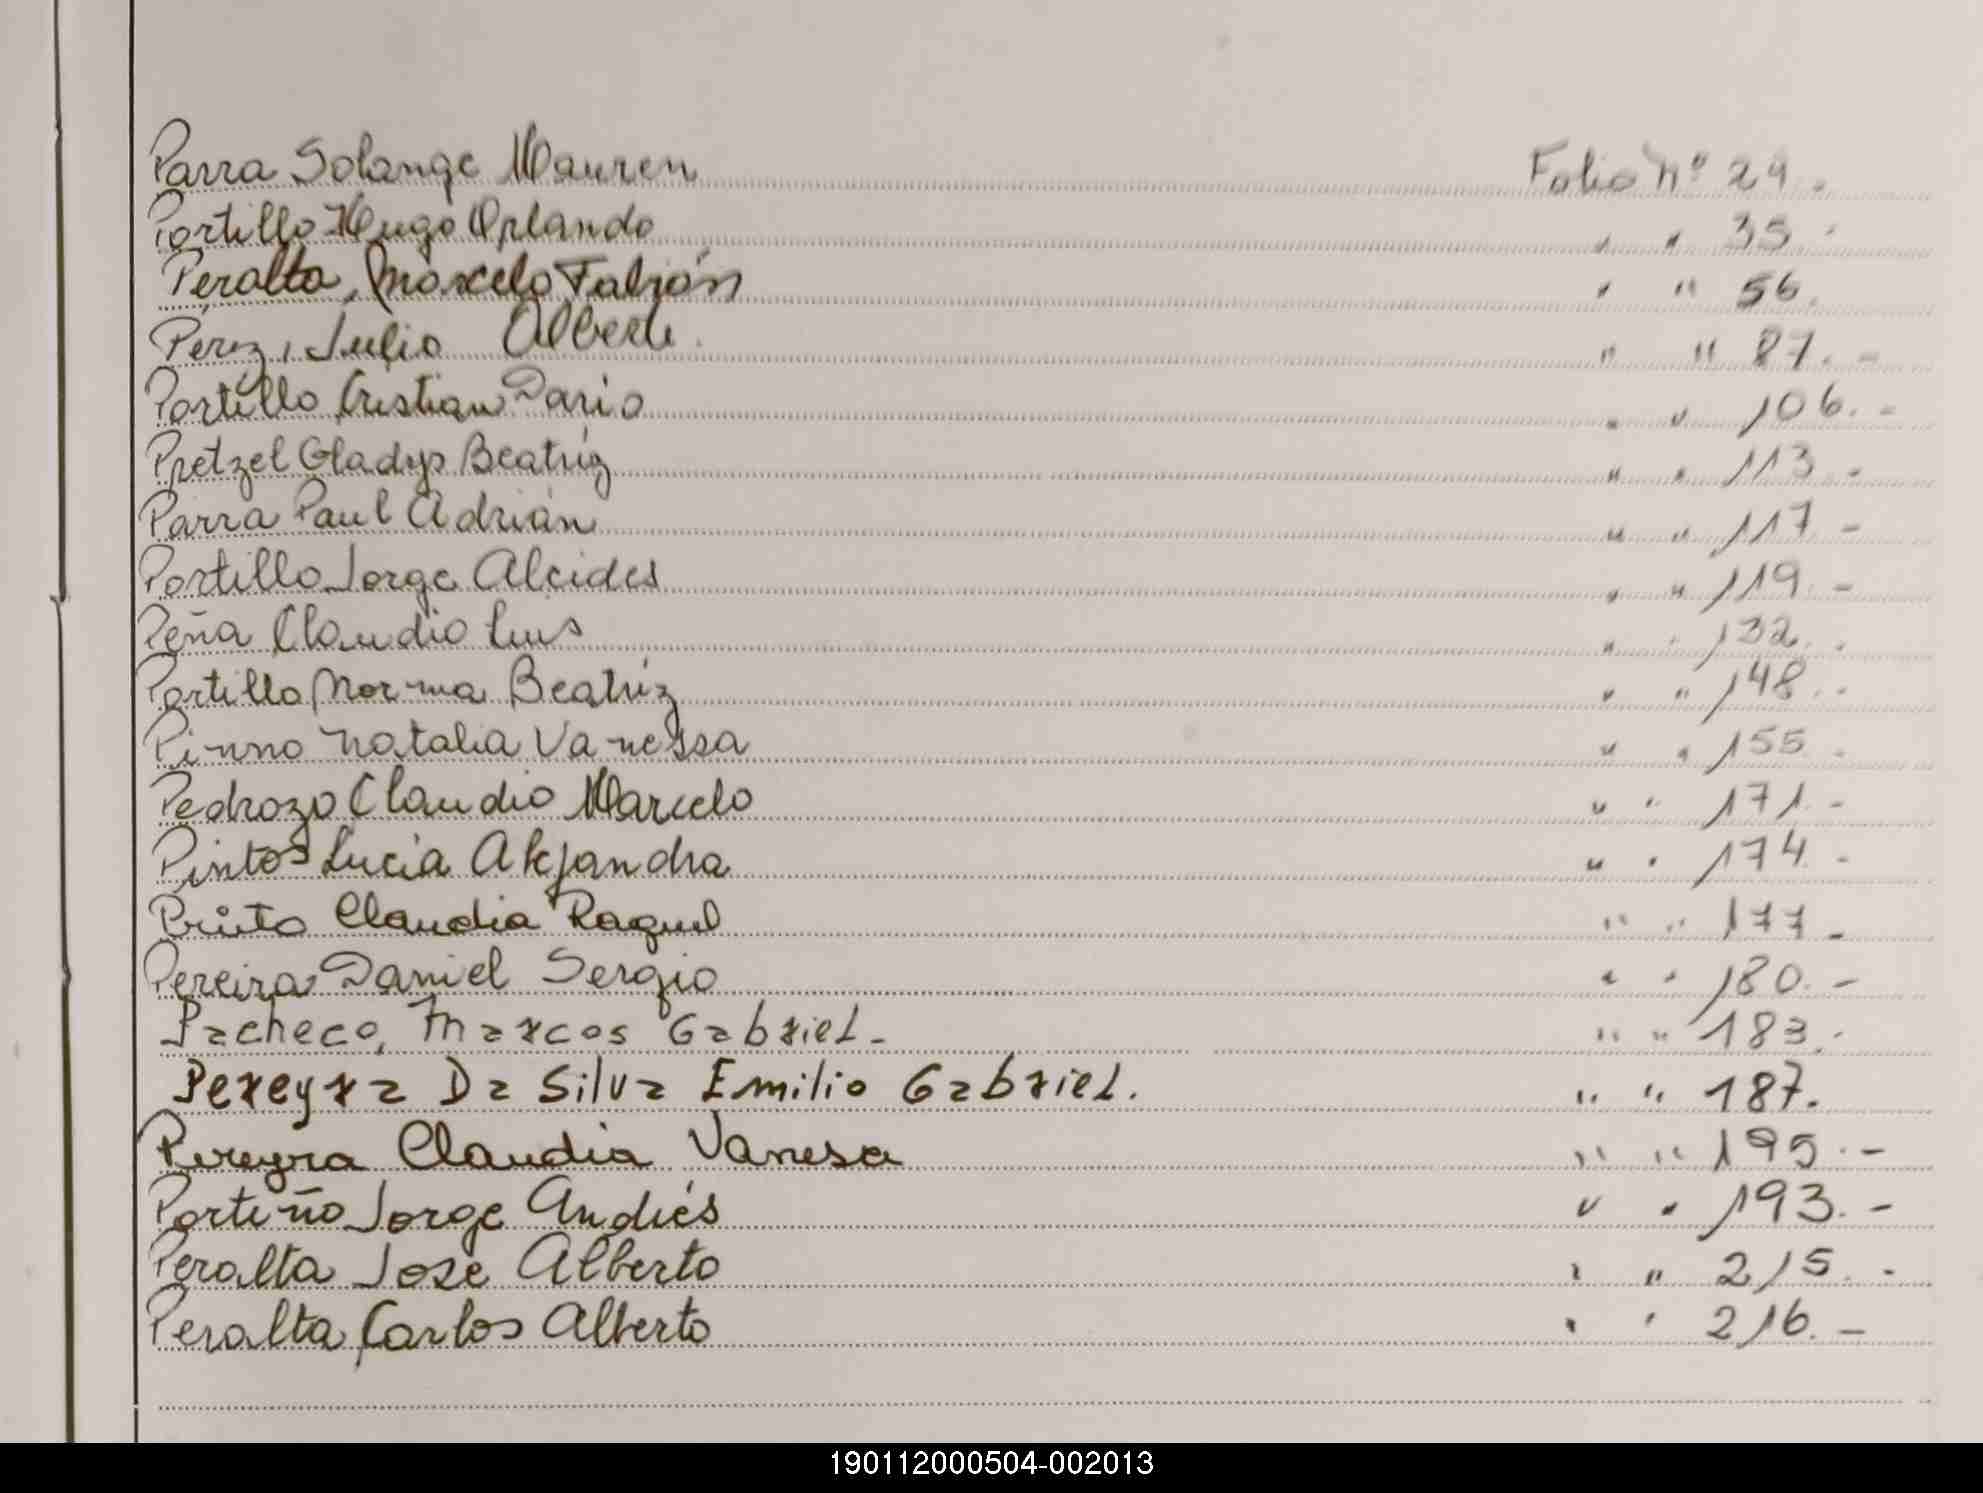 Parra Solange Mauren Folio Nº 29.
Portillo Hugo Orlando " " 35.-
Peralta, Marcelo Fabián " " 56.
Perez, Julio Alberto. " " 87.-
Portillo Cristian Dario " " 106.-
Pretzel Gladys Beatriz " " 113.-
Parra Paul Adrián " " 117.-
Portillo Jorge Alcides " " 119.-
Peña Claudio Luis " " 132.-
Portillo Norma Beatriz " " 148.-
Pinno Natalia Vanessa " " 155.-
Pedrozo Claudio Marcelo " " 171.-
Pintos Lucia Alejandra " " 174.-
Prieto Claudia Raquel " " 177.-
Pereira Daniel Sergio " " 180.-
Pacheco, Marcos Gabriel.- " " 183.-
Pereyra Da Silva Emilio Gabriel. " " 187.
Pereyra Claudia Vanesa " " 195.-
Portiño Jorge Andrés " " 193.-
Peralta Jose Alberto " " 215.-
Peralta Carlos Alberto " " 216.-
190112000504-002013